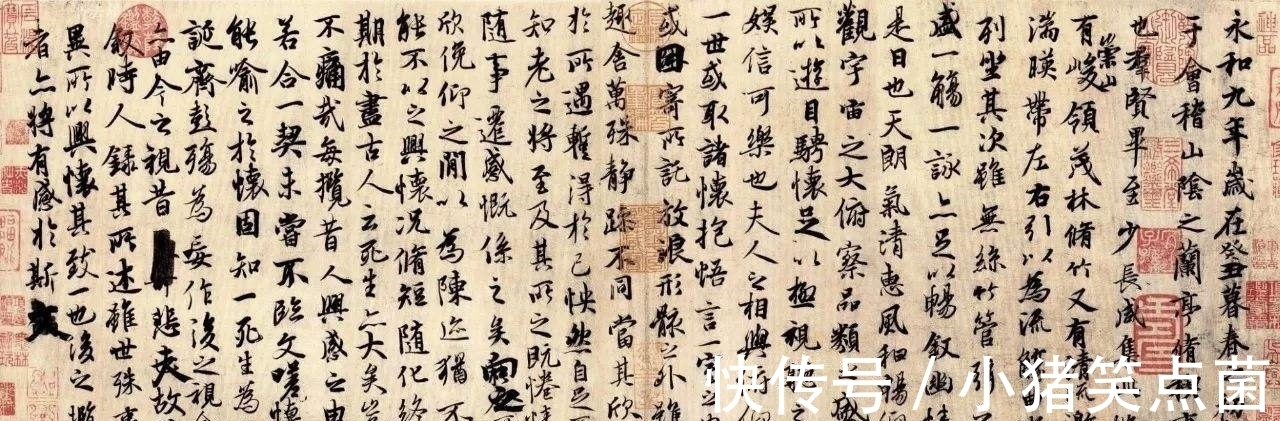 永和九年歲在癸丑暮春
于會稽山陰之蘭亭脩
也羣賢畢至少長咸集
崇山
有峻領茂林脩竹又有清流
湍暎帶左右引以為流
列坐其次雖無絲竹管弦
盛一觴一詠亦足以暢叙幽情
是日也天朗氣清惠風和暢仰
觀宇宙之大俯察品類
所以遊目騁懷足以極視聽之
娛信可樂也夫人之相與俯仰
一世或取諸懷抱悟言一室之
或因寄所託放浪形骸之外雖
趣舍萬殊静躁不同當其欣
於所遇暫得於己怏然自足
知老之將至及其所之既惓情
随事遷感慨係之矣向之
欣俛仰之閒以為陳迹猶不
能不以之興懷況脩短随化終
期於盡古人云死生亦大矣豈
不痛哉每攬昔人興感之由
若合一契未嘗不臨文嗟悼
能喻之於懷固知一死生為
誕齊彭殤為妄作後之視今
亦由今之視昔悲夫故
叙時人録其所述雖世殊事
異所以興懷其致一也後之攬
者亦將有感於斯文
快传号/小猪笑点菌